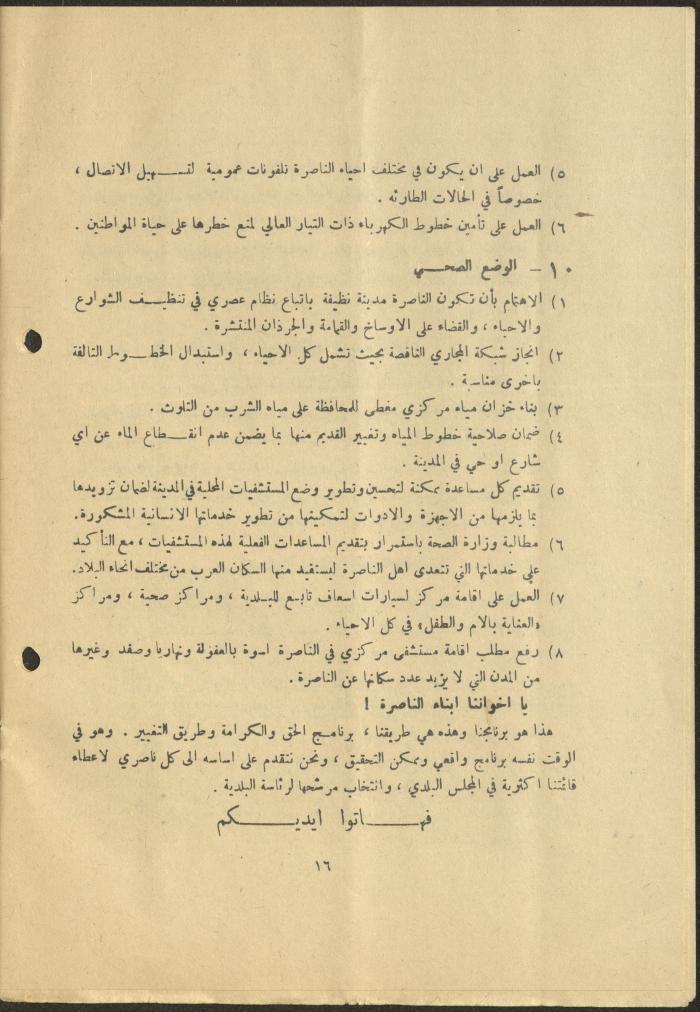 ٥) العمل على ان يكون في مختلف احياء الناصرة تلفونات عمومية لتسهيل الاتصال ،
خصوصاً في الحالات الطارئه .
٦) العمل على تأمين خطوط الكهرباء ذات التيار العالي لمنع خطرها على حياة المواطنين .
١٠ - الوضع الصحي
١) الاهتمام بأن تكون الناصرة مدينة نظيفة باتباع نظام عصري في تنظيف الشوارع
والاحياء ، والقضاء على الاوساخ والقمامة والجرذان المنتشرة .
٢) انجاز شبكة المجاري الناقصة بحيث تشمل كل الاحياء ، واستبدال الخطوط التالفة
باخرى مناسبة .
٣) بناء خزان مياه مركزي مغطى للمحافظة على مياه الشرب من التلوث .
٤) ضمان صلاحية خطوط المياه وتغيير القديم منها بما يضمن عدم انقطاع الماء عن اي
شارع او حي في المدينة .
٥) تقديم كل مساعدة ممكنة لتحسين وتطوير وضع المستشفيات المحلية في المدينة لضمان تزويدها
بما يلزمها من الاجهزة والادوات لتمكينها من تطوير خدماتها الانسانية المشكورة.
٦) مطالبة وزارة الصحة باستمرار بتقديم المساعدات الفعلية لهذه المستشفيات ، مع التأكيد
على خدماتها التي تتعدى اهل الناصرة ليستفيد منها السكان العرب من مختلف انحاء البلاد.
٧) العمل على اقامة مركز لسيارات اسعاف تابع للبلدية ، ومراكز صحية ، ومراكز
«العناية بالام والطفل» في كل الاحياء .
٨) رفع مطلب اقامة مستشفى مركزي في الناصرة اسوة بالعفولة ونهاريا وصفد وغيرها
من المدن التي لا يزيد عدد سكانها عن الناصرة .
يا اخواننا ابناء الناصرة !
هذا هو برنامجنا وهذه هي طريقنا ، برنامج الحق والكرامة وطريق التغيير . وهو في
الوقت نفسه برنامج واقعي وممكن التحقيق ، ونحن نتقدم على اساسه الى كل ناصري لاعطاء
قائمتنا اكثرية في المجلس البلدي ، وانتخاب مرشحها لرئاسة البلدية .
فهاتوا ايديكم
١٦